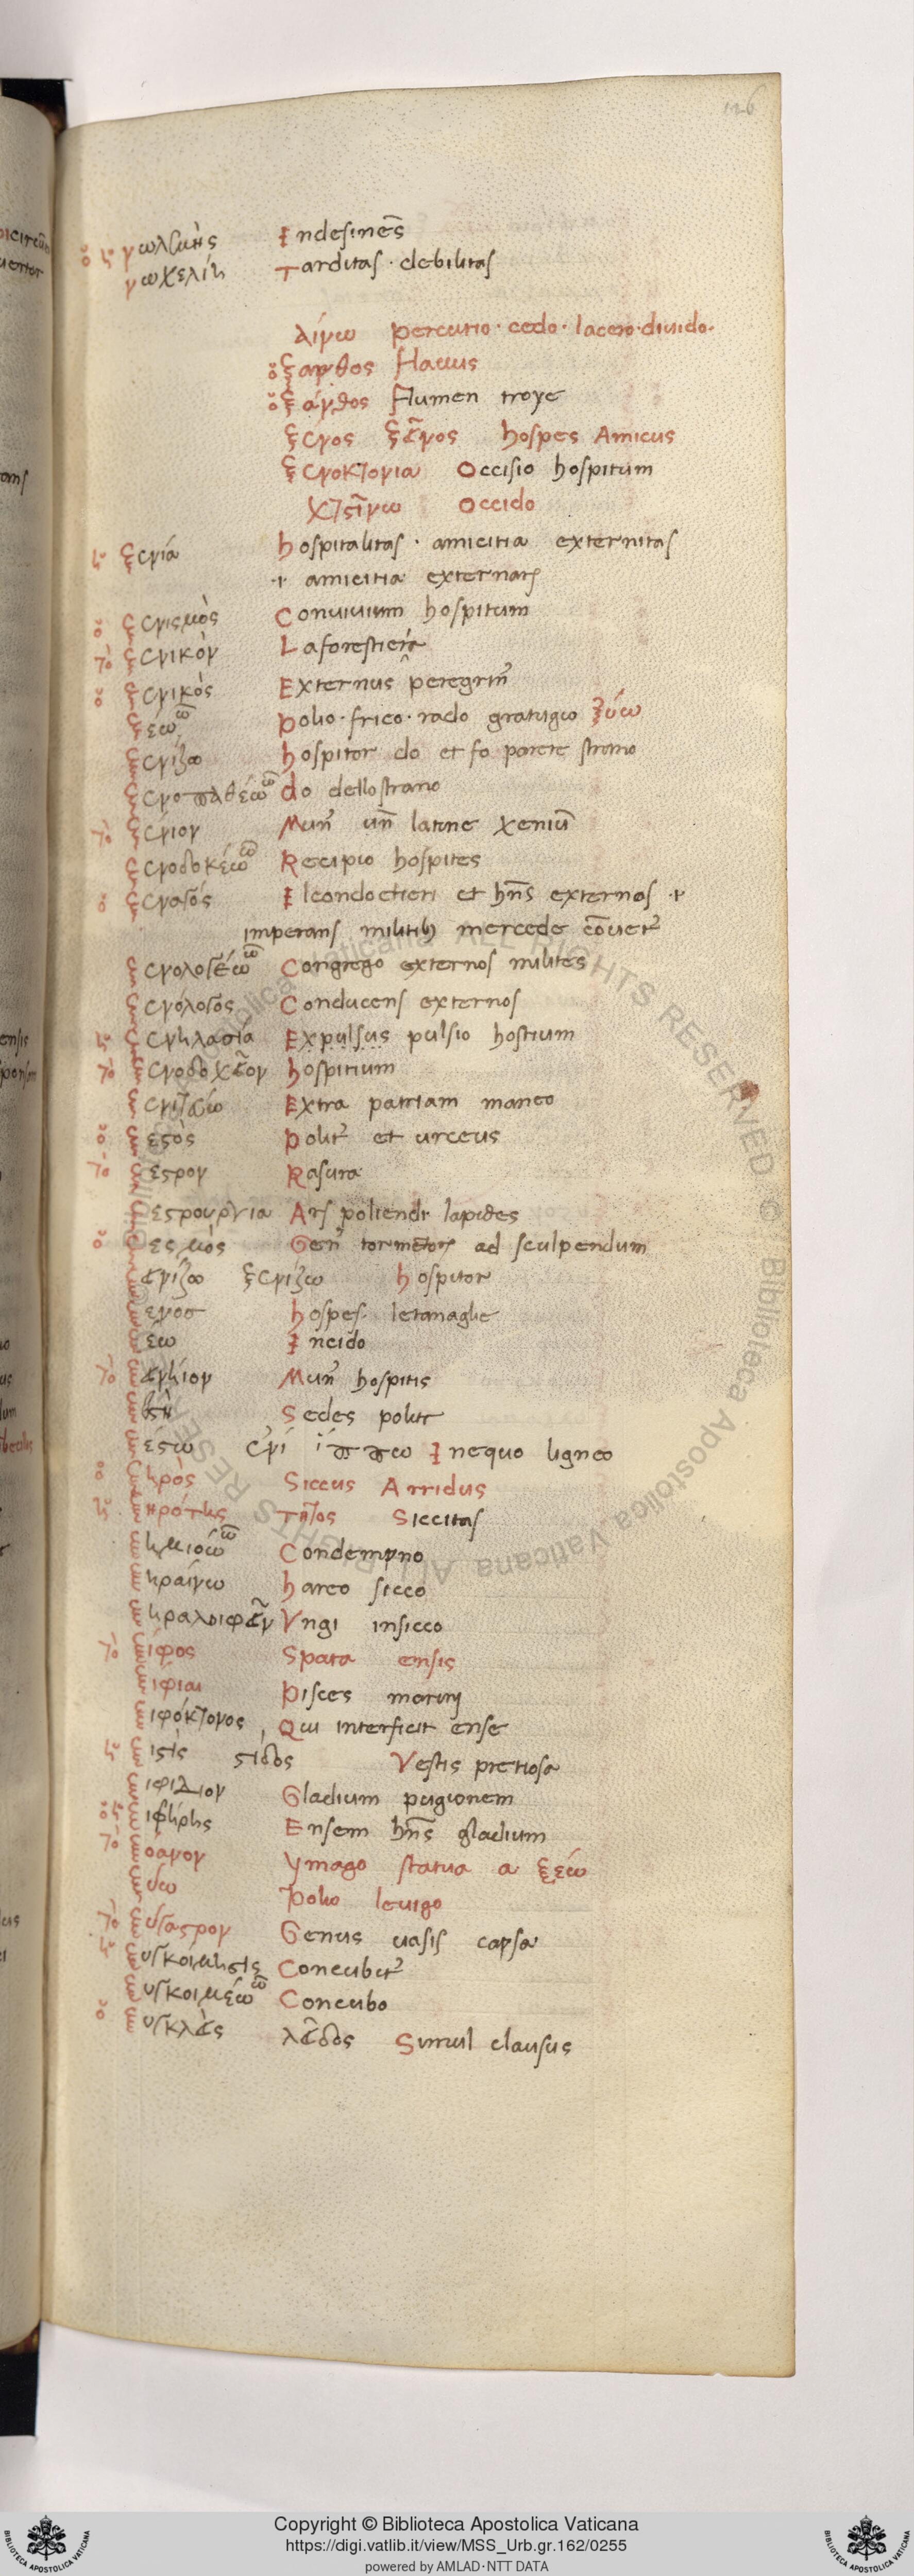 126
ὁ ἡ νωλεμὴς Indesinens̄
νωχελίη Tarditas · debilitas
λίνω percutio · cedo · lacero · diuido ·
ὁ ξανθος Flauus
ὁ ξάνθος Flumen troye
ξένος ξεῖνος hospes Amicus
ξενοκτονια Occisio hospitum
χτείνω Occido
ἡ ξενία hospitalitas · amicitia externitas
amicitia externaꝝ
ὁ ξενισμὸς Conuiuium hospitum
τὸ ξενικὸν Laforestieria
ὁ ξενικὸς Externus peregrin᷒
ξέω ῶ polio · frico · rado gratugio ξύω
ξενίζω hospitor do et fo parere strano
ξενοπαθέω ῶ do dellostrano
τὸ ξένιον Mun᷒ un̄ latine xeniū
ξενοδοκέω ῶ Recipio hospites
ὁ ξεναγός Ilcondoctieri et hn̄s externos
imperans militibꝫ mercede
ξενολογέω ῶ Congrego externos milites
ξενόλογος Conducens externos
ἡ ξενηλασία Expulsus pulsio hostium
τὸ ξενοδοχεῖον hospitium
ξενιτεύω Extra patriam maneo
ὁ ξεσὸς polit᷒ et urceus
τὸ ξεςρον Rasura
ξεςρουργια Ars poliendi lapides
ὁ ξεςμὸς Gen᷒ tormētoꝝ ad sculpendum
ξεινίζω ξενίζω hospitor
ξεινοσ hospes letanaglie
ξέω Incido
τὸ ξεινήιον Mun᷒ hospitis
Sedes polite
ξέςω ἐνὶ ἵππω Inequo ligneo
ὁ ξηρὸς Siccus Arridus
ἡ ξηρότης τητος Siccitas
ξημιόω ῶ Condempno
ξηραίνω hareo sicco
ξηραλοιφεῖν Vngi insicco
τὸ ξίφος Spata ensis
ξιφίαι Pisces marinj
ξιφόκτονος Qui interficit ense
ἡ ξιςὶς ςίδος Vestis pretiosa
ξιφίδιον Gladium pugionem
ὁ ἡ ξιφήρης Ensem hn̄s gladium
τὸ ξόανον ymago statua a ξέω
ξύω polio leuigo
τὸ ξύςαςρον Genus uasis capsa
ἡ ξυγκοίμησις Concubit᷒
ξυγκοιμέω ῶ Concubo
ὁ ξυγκλὰς λεῖδος Simul clausus
Copyright © Biblioteca Apostolica Vaticana
https://digi.vatlib.it/view/MSS_Urb.gr.162/0255
powered by AMLAD·NTT DATA